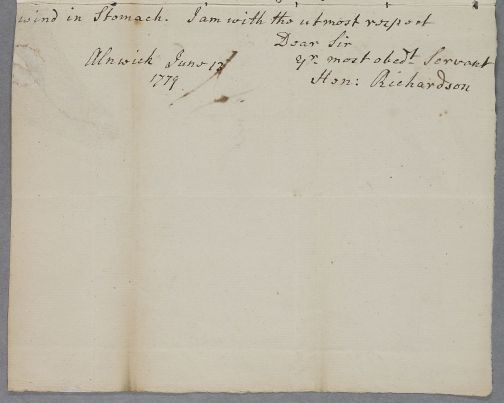 wind in Stomach. I am with the utmost respect
Dear Sir
Alnwick June 12 yr. most obedt. Servant
1779 Hon: Richardson